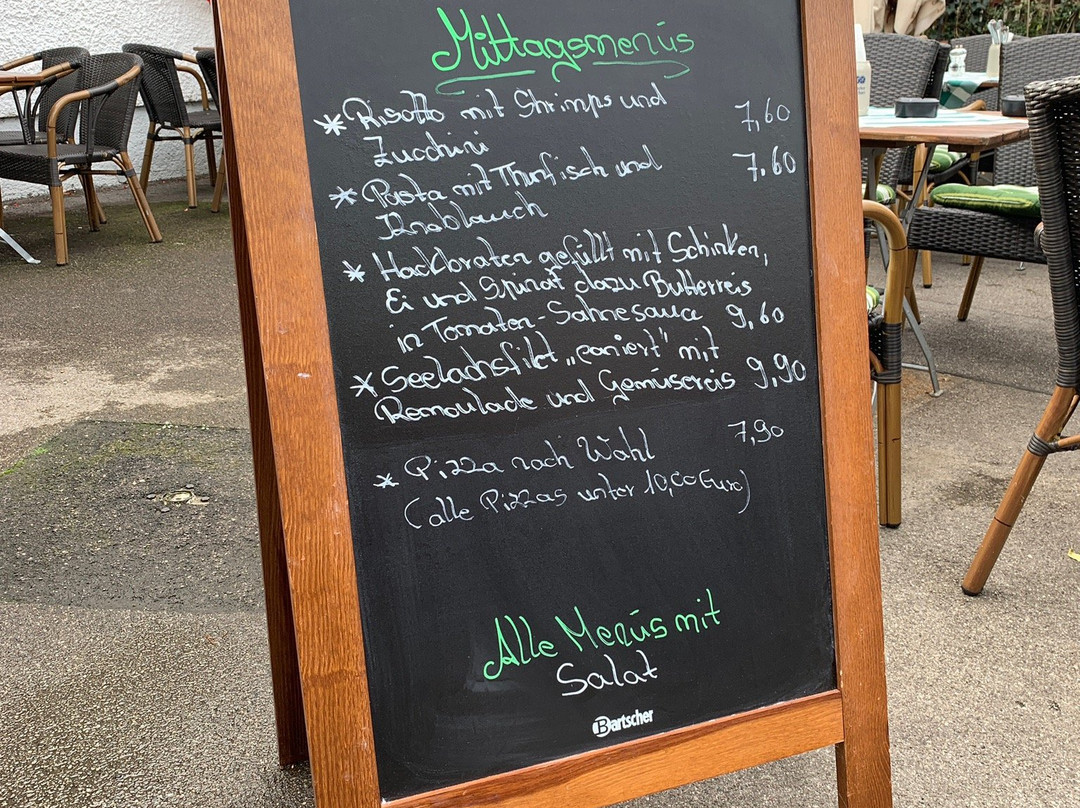 Mittagsmenüs
* Risotto mit Shrimps und 7,60
Zucchini
* Pasta mit Thunfisch und 7.60
Knoblauch
* Hackbraten gefüllt mit Schinken,
Ei und Spinat dazu Butterreis
in Tomaten-Sahnesauce 9,60
* Seelachsfilet „paniert" mit
Remoulade und Gemüsereis 9,90
* Pizza nach Wahl 7,90
(alle Pizzas unter 10,00 Euro)
Alle Menüs mit
Salat
Bartscher